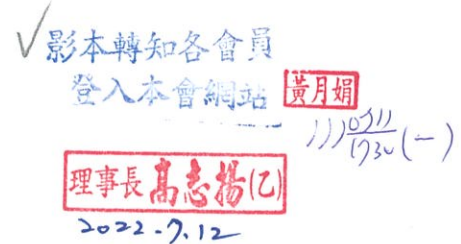 ✓影本轉知各會員
登入本會網站
黃月娟
111 0711
1730(一)
理事長高志揚(乙)
2022.7.12